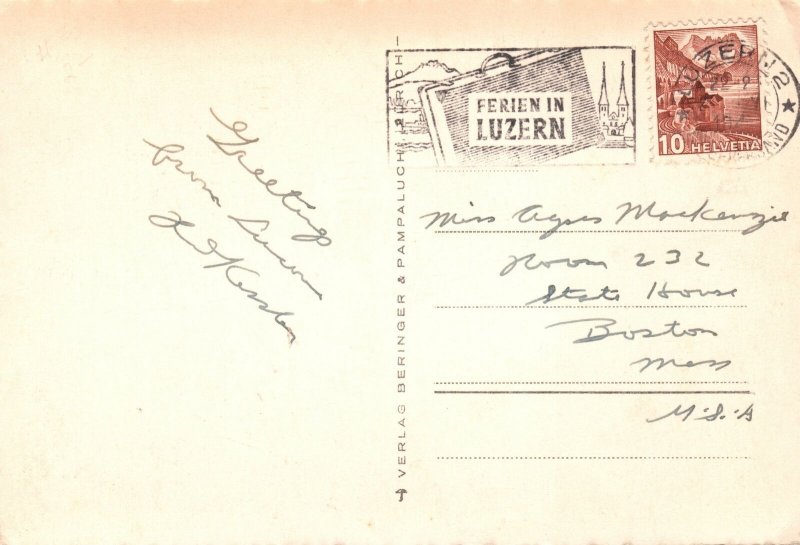 Greetings
from Lucerne
Kessler
VERLAG BERINGER & PAMPALUCHI ZÜRICH
FERIEN IN
LUZERN
LUZERN 2
10 HELVETIA
Miss Agnes Mackenzie
Room 232
State House
Boston
Mass
U.S.A